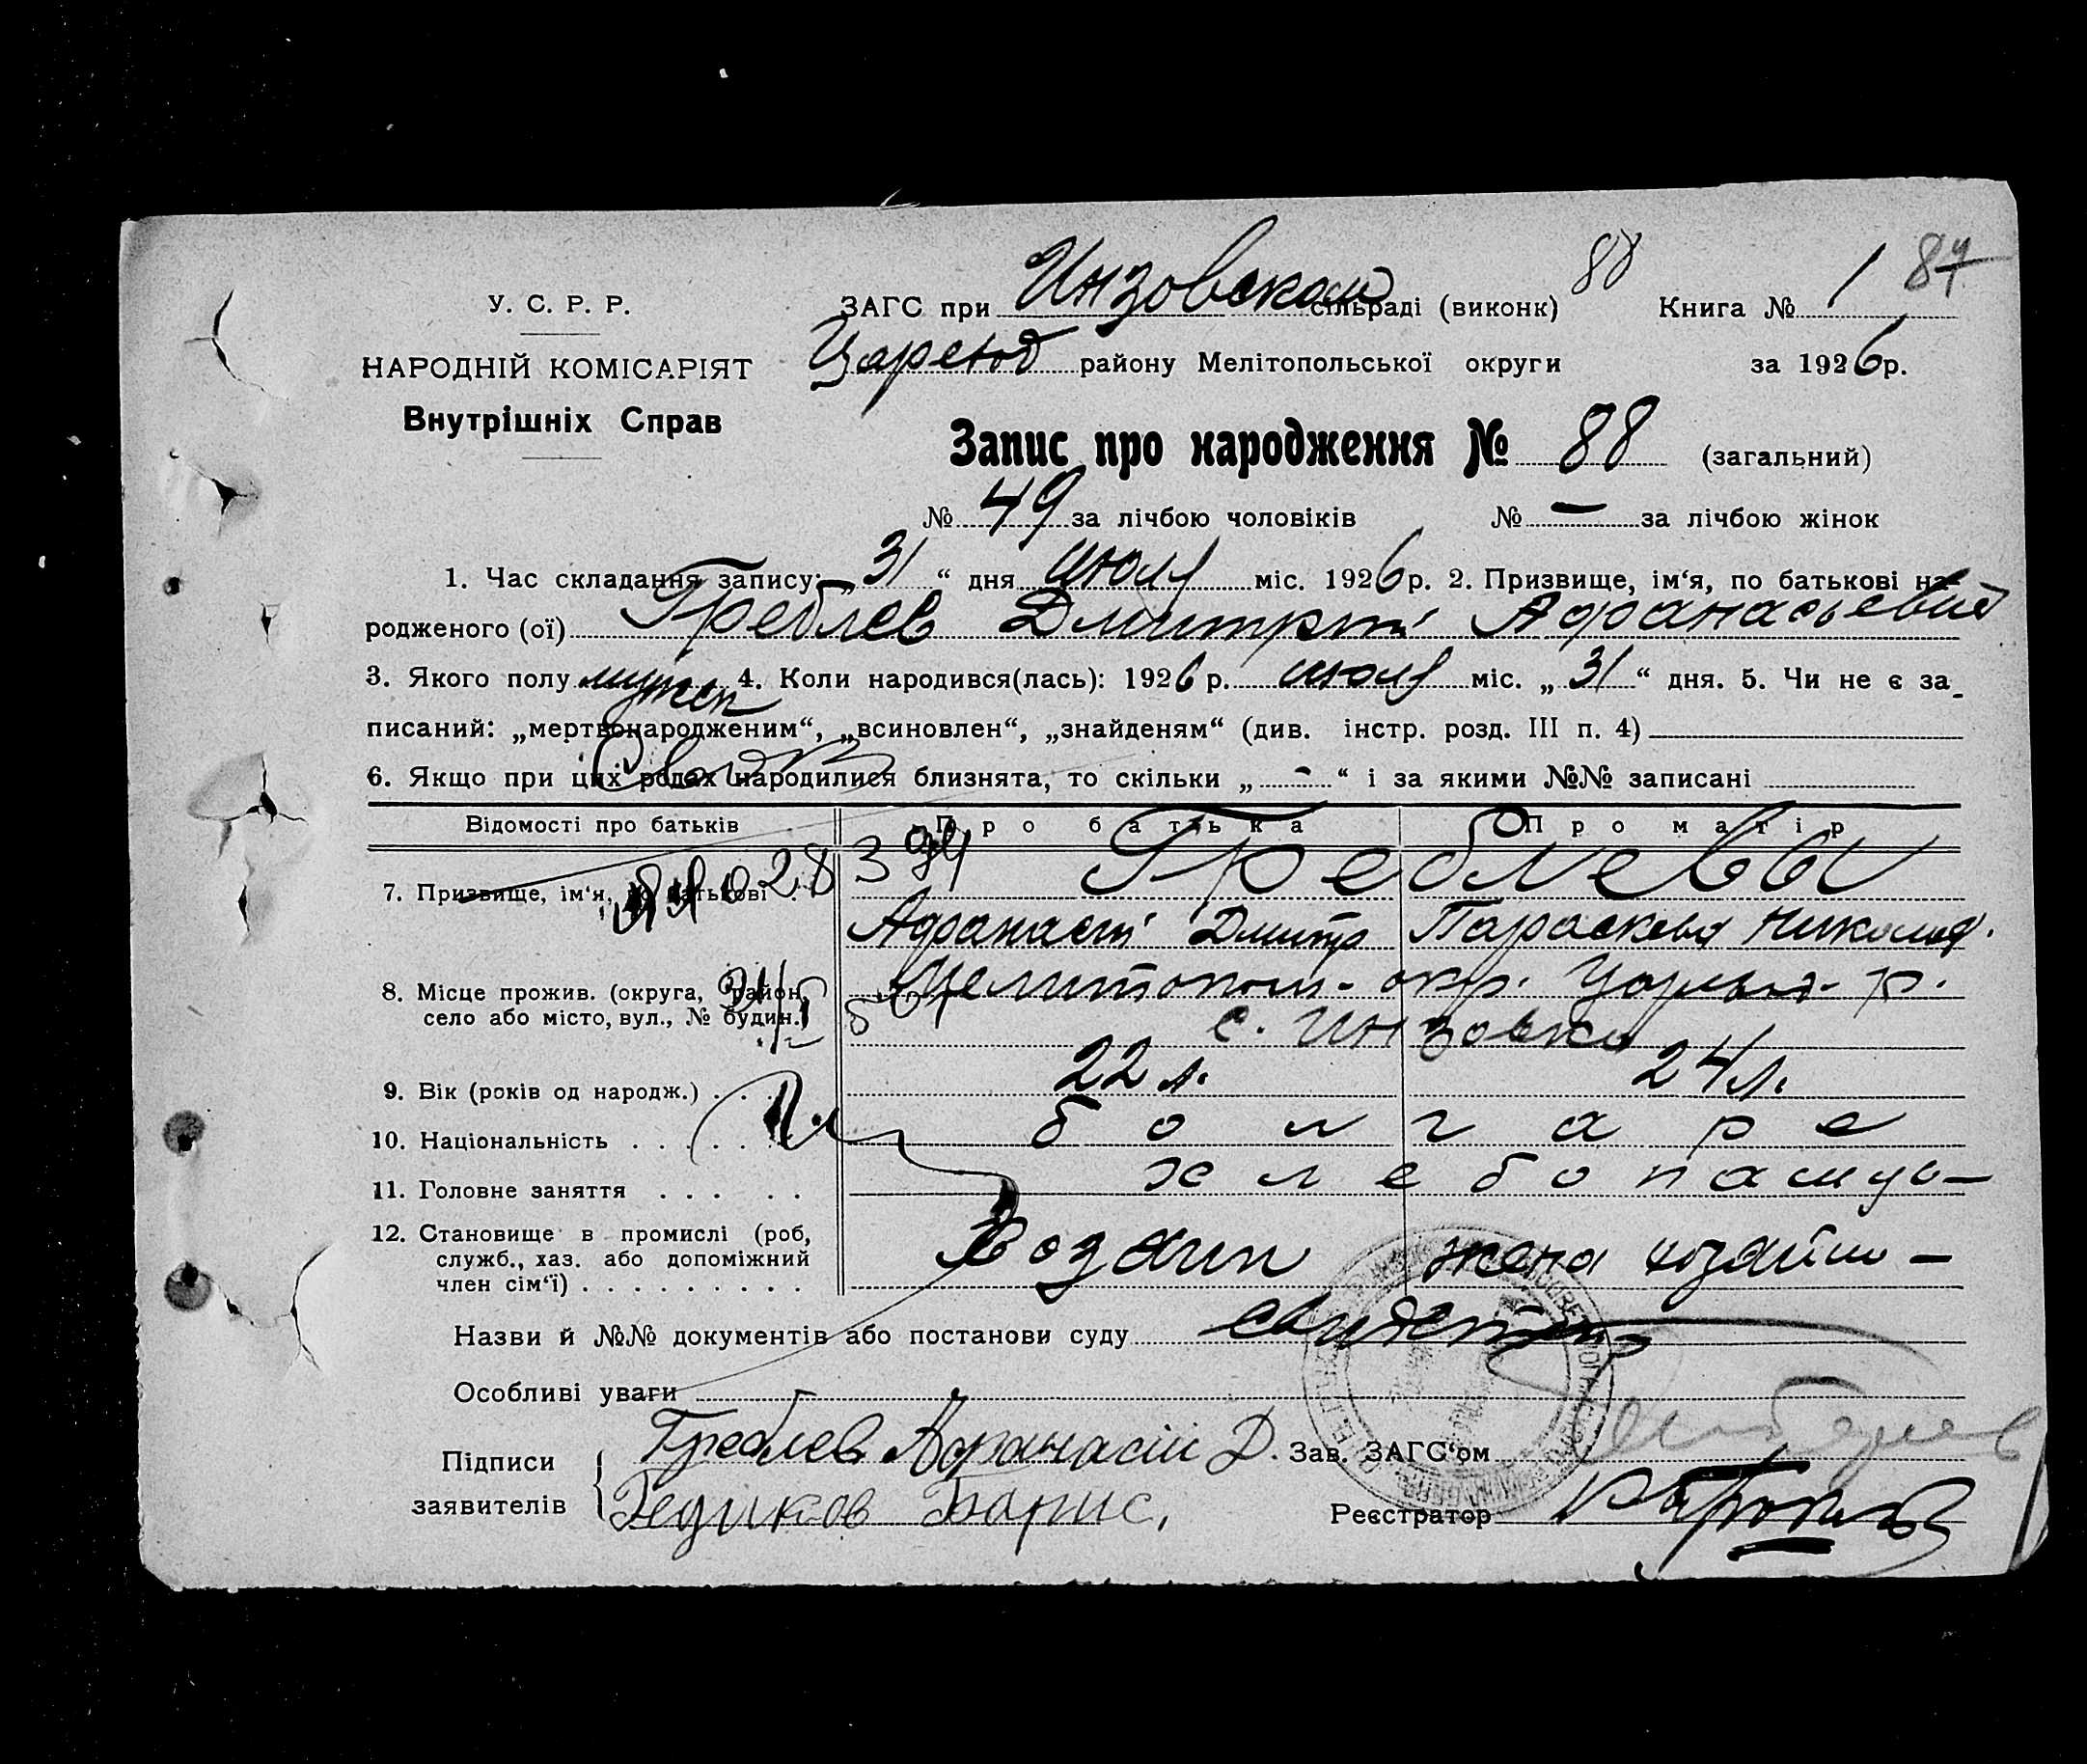 88
87
У. С. Р. Р.
ЗАГС при Инзовском сільраді (виконк) Книга № 1
НАРОДНІЙ КОМІСАРІЯТ
Царевод району Мелітопольської округи за 1926 р.
Внутрішніх Справ
Запис про народження № 88 (загальний)
№ 49 за лічбою чоловіків № — за лічбою жінок
1. Час складання запису: „ 31 “ дня июля міс. 1926 р. 2. Призвище, ім‘я, по батькові на-
родженого (ої) Греблев Дмитрий Афанасьевич
3. Якого полу мужск 4. Коли народився(лась): 1926 р. июля міс. „ 31 “ дня. 5. Чи не є за-
писаний: „мертвонародженим“, „всиновлен“, „знайденям“ (див. інстр. розд. III п. 4)
6. Якщо при цих родах народилися близнята, то скільки „ - “ і за якими №№ записані
Відомості про батьків Про батька Про матір
7. Призвище, ім‘я, по батькові . Греблевы
Афанасий Дмитр Параскева Николаев.
8. Місце прожив. (округа, район, Мелитопол- окр. р.
село або місто, вул., № будин.) с. Инзовка
9. Вік (років од народж.) . . . 22 л. 24 л.
10. Національність . . . . . . болгаре
11. Головне заняття . . . . . хлебопашцы-
12. Становище в промислі (роб,
служб., хаз. або допоміжний хозяин жена хозяина-
член сім‘ї) . . . . . . . . .
Назви й №№ документів або постанови суду
Особливі уваги
Підписи Греблев Афанасій Д. Зав. ЗАГС‘ом
заявителів Гедиков Борис. Реєстратор